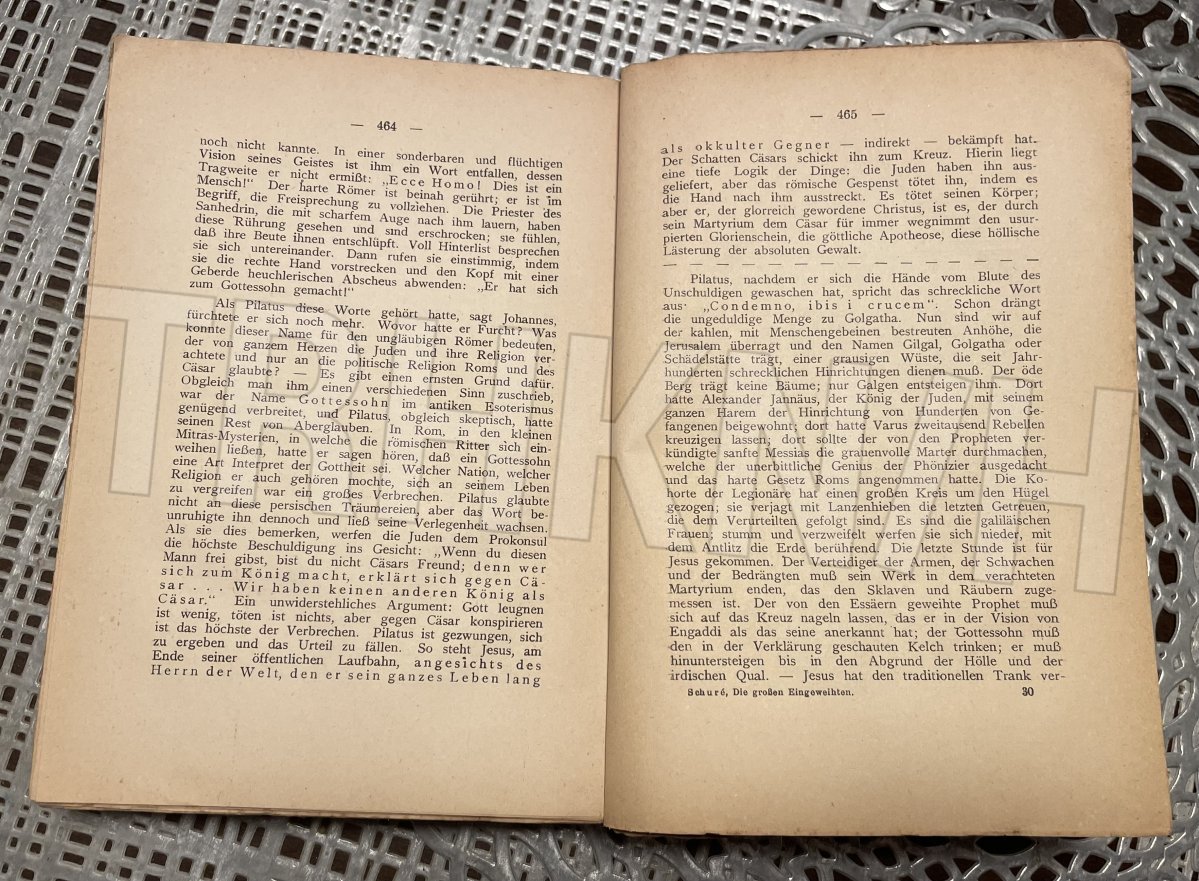 — 464 —
noch nicht kannte. In einer sonderbaren und flüchtigen
Vision seines Geistes ist ihm ein Wort entfallen, dessen
Tragweite er nicht ermißt: „Ecce Homo! Dies ist ein
Mensch!“ Der harte Römer ist beinah gerührt; er ist im
Begriff, die Freisprechung zu vollziehen. Die Priester des
Sanhedrin, die mit scharfem Auge nach ihm lauern, haben
diese Rührung gesehen und sind erschrocken; sie fühlen,
daß ihre Beute ihnen entschlüpft. Voll Hinterlist besprechen
sie sich untereinander. Dann rufen sie einstimmig, indem
sie die rechte Hand vorstrecken und den Kopf mit einer
Geberde heuchlerischen Abscheus abwenden: „Er hat sich
zum Gottessohn gemacht!“
Als Pilatus diese Worte gehört hatte, sagt Johannes,
fürchtete er sich noch mehr. Wovor hatte er Furcht? Was
konnte dieser Name für den ungläubigen Römer bedeuten,
der von ganzem Herzen die Juden und ihre Religion ver-
achtete und nur an die politische Religion Roms und des
Cäsar glaubte? — Es gibt einen ernsten Grund dafür.
Obgleich man ihm einen verschiedenen Sinn zuschrieb,
war der Name Gottessohn im antiken Esoterismus
genügend verbreitet, und Pilatus, obgleich skeptisch, hatte
seinen Rest von Aberglauben. In Rom, in den kleinen
Mitras-Mysterien, in welche die römischen Ritter sich ein-
weihen ließen, hatte er sagen hören, daß ein Gottessohn
eine Art Interpret der Gottheit sei. Welcher Nation, welcher
Religion er auch gehören mochte, sich an seinem Leben
zu vergreifen war ein großes Verbrechen. Pilatus glaubte
nicht an diese persischen Träumereien, aber das Wort be-
unruhigte ihn dennoch und ließ seine Verlegenheit wachsen.
Als sie dies bemerken, werfen die Juden dem Prokonsul
die höchste Beschuldigung ins Gesicht: „Wenn du diesen
Mann frei gibst, bist du nicht Cäsars Freund; denn wer
sich zum König macht, erklärt sich gegen Cä-
sar . . . Wir haben keinen anderen König als
Cäsar.“ Ein unwiderstehliches Argument: Gott leugnen
ist wenig, töten ist nichts, aber gegen Cäsar konspirieren
ist das höchste der Verbrechen. Pilatus ist gezwungen, sich
zu ergeben und das Urteil zu fällen. So steht Jesus, am
Ende seiner öffentlichen Laufbahn, angesichts des
Herrn der Welt, den er sein ganzes Leben lang
— 465 —
als okkulter Gegner — indirekt — bekämpft hat.
Der Schatten Cäsars schickt ihn zum Kreuz. Hierin liegt
eine tiefe Logik der Dinge: die Juden haben ihn aus-
geliefert, aber das römische Gespenst tötet ihn, indem es
die Hand nach ihm ausstreckt. Es tötet seinen Körper;
aber er, der glorreich gewordene Christus, ist es, der durch
sein Martyrium dem Cäsar für immer wegnimmt den usur-
pierten Glorienschein, die göttliche Apotheose, diese höllische
Lästerung der absoluten Gewalt.
Pilatus, nachdem er sich die Hände vom Blute des
Unschuldigen gewaschen hat, spricht das schreckliche Wort
aus: „Condemno, ibis i crucem“. Schon drängt
die ungeduldige Menge zu Golgatha. Nun sind wir auf
der kahlen, mit Menschengebeinen bestreuten Anhöhe, die
Jerusalem überragt und den Namen Gilgal, Golgatha oder
Schädelstätte trägt, einer grausigen Wüste, die seit Jahr-
hunderten schrecklichen Hinrichtungen dienen muß. Der öde
Berg trägt keine Bäume; nur Galgen entsteigen ihm. Dort
hatte Alexander Jannäus, der König der Juden, mit seinem
ganzen Harem der Hinrichtung von Hunderten von Ge-
fangenen beigewohnt; dort hatte Varus zweitausend Rebellen
kreuzigen lassen; dort sollte der von den Propheten ver-
kündigte sanfte Messias die grauenvolle Marter durchmachen,
welche der unerbittliche Genius der Phönizier ausgedacht
und das harte Gesetz Roms angenommen hatte. Die Ko-
horte der Legionäre hat einen großen Kreis um den Hügel
gezogen; sie verjagt mit Lanzenhieben die letzten Getreuen,
die dem Verurteilten gefolgt sind. Es sind die galiläischen
Frauen; stumm und verzweifelt werfen sie sich nieder, mit
dem Antlitz die Erde berührend. Die letzte Stunde ist für
Jesus gekommen. Der Verteidiger der Armen, der Schwachen
und der Bedrängten muß sein Werk in dem verachteten
Martyrium enden, das den Sklaven und Räubern zuge-
messen ist. Der von den Essäern geweihte Prophet muß
sich auf das Kreuz nageln lassen, das er in der Vision von
Engaddi als das seine anerkannt hat; der Gottessohn muß
den in der Verklärung geschauten Kelch trinken; er muß
hinuntersteigen bis in den Abgrund der Hölle und der
irdischen Qual. — Jesus hat den traditionellen Trank ver-
Schuré, Die großen Eingeweihten. 30